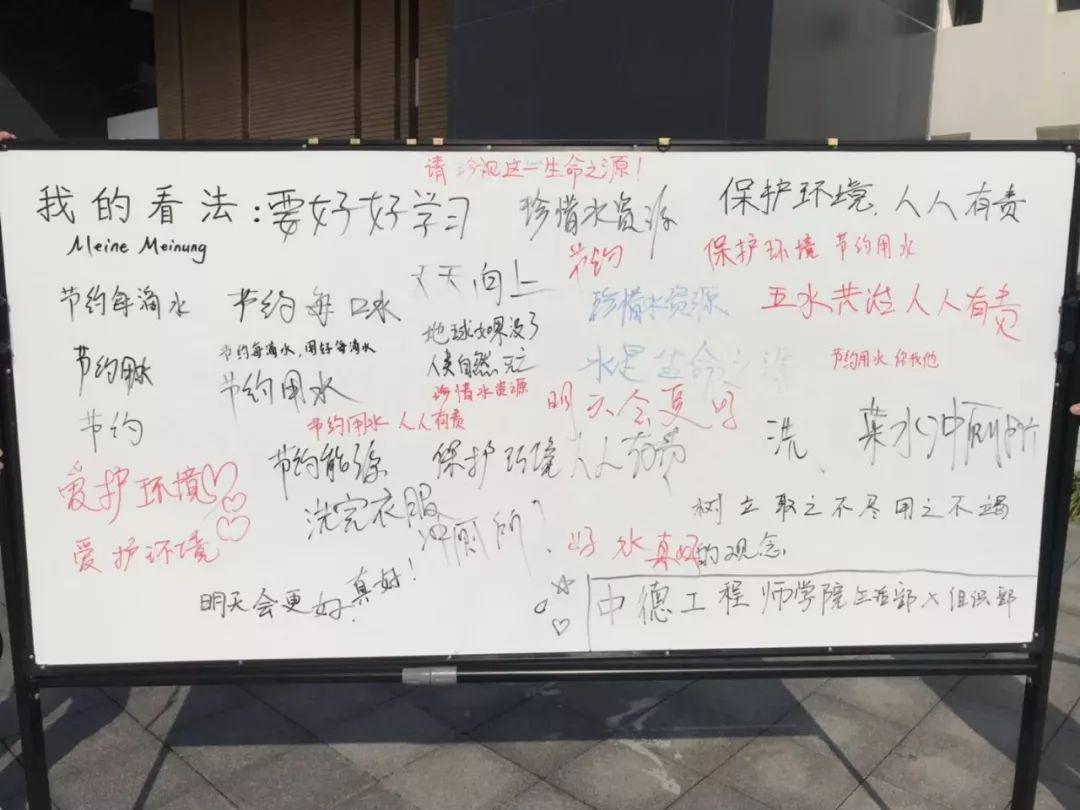 请珍视这一生命之源！
我的看法：要好好学习
Meine Meinung
珍惜水资源
保护环境，人人有责
节约
保护环境 节约用水
天天向上
节约每滴水
节约每口水
珍惜水资源
五水共治人人有责
地球如果没了
人类自然灭亡
节约用水
节约每滴水，用好每滴水
节约用水
珍惜水资源
水是生命之源
节约用水 你我他
明天会更好
节约
节约用水 人人有责
洗、菜水冲厕所
爱护环境
节约能源
保护环境 人人有责
洗完衣服
冲厕所
树立取之不尽用之不竭
的观念
爱护环境
好水真好
明天会更好！
真好！
中德工程师学院生活部×组织部